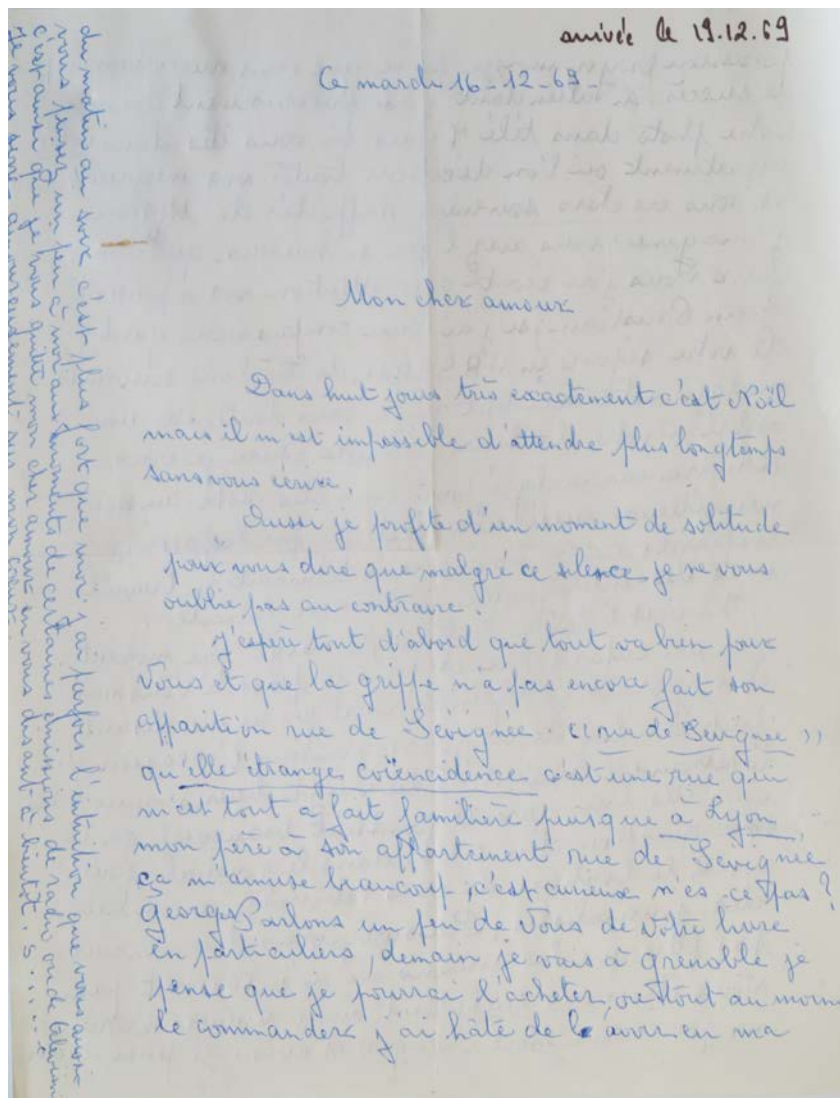 arrivée le 19.12.69
Ce mardi 16-12-69-
Mon cher amour
Dans huit jours très exactement c'est Noël
mais il m'est impossible d'attendre plus longtemps
sans vous écrire.
Aussi je profite d'un moment de solitude
pour vous dire que malgré ce silence je ne vous
oublie pas au contraire.
J'espère tout d'abord que tout va bien pour
Vous et que la griffe n'a pas encore fait son
apparition rue de Sevignée. "rue de Sevignee"
qu'elle étrange coïencidence c'est une rue qui
m'est tout a fait familière puisque à Lyon
mon père à son appartement rue de Sevignée
ça m'amuse beaucoup, c'est curieux n'es ce pas?
Georges Parlons un peu de Vous de Votre livre
en particuliers, demain je vais à Grenoble je
pense que je pourrai l'acheter, ou tout au moins
le commander j'ai hâte de l'avoir en ma
du matin au soir c'est plus fort que moi. j'ai parfois l'intuition que vous aussi
vous pensez un peu à moi aux moments de certaines émissions de radio ou de télévision
c'est ainsi que je vous quitte mon cher amour en vous disant à bientôt. S.....
Je vous serre amoureusement sur mon cœur